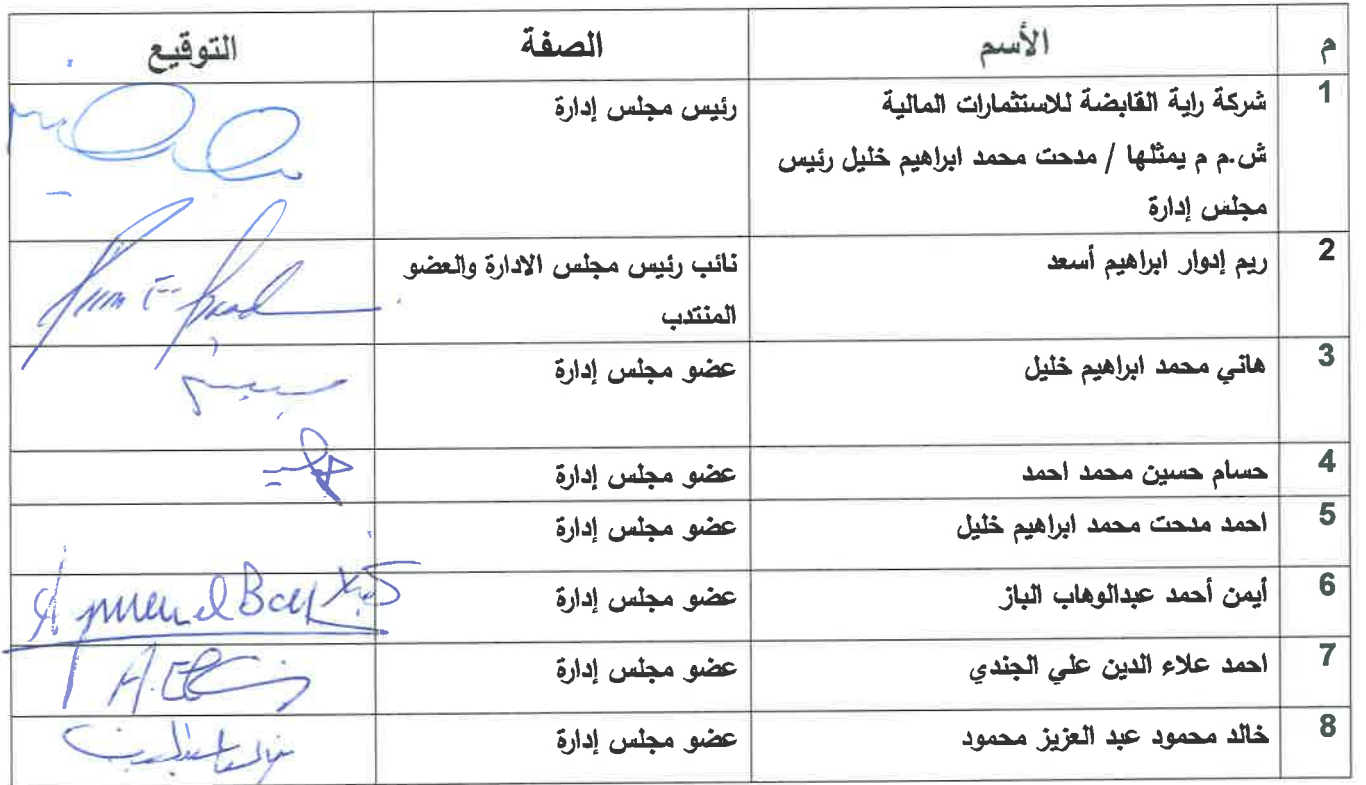 م الأسم الصفة التوقيع
1 شركة راية القابضة للاستثمارات المالية رئيس مجلس إدارة
ش.م م يمثلها / مدحت محمد ابراهيم خليل رئيس
مجلس إدارة
2 ريم إدوار ابراهيم أسعد نائب رئيس مجلس الادارة والعضو
المنتدب
3 هاني محمد ابراهيم خليل عضو مجلس إدارة
4 حسام حسين محمد احمد عضو مجلس إدارة
5 احمد مدحت محمد ابراهيم خليل عضو مجلس إدارة
6 أيمن أحمد عبدالوهاب الباز عضو مجلس إدارة
7 احمد علاء الدين علي الجندي عضو مجلس إدارة
8 خالد محمود عبد العزيز محمود عضو مجلس إدارة